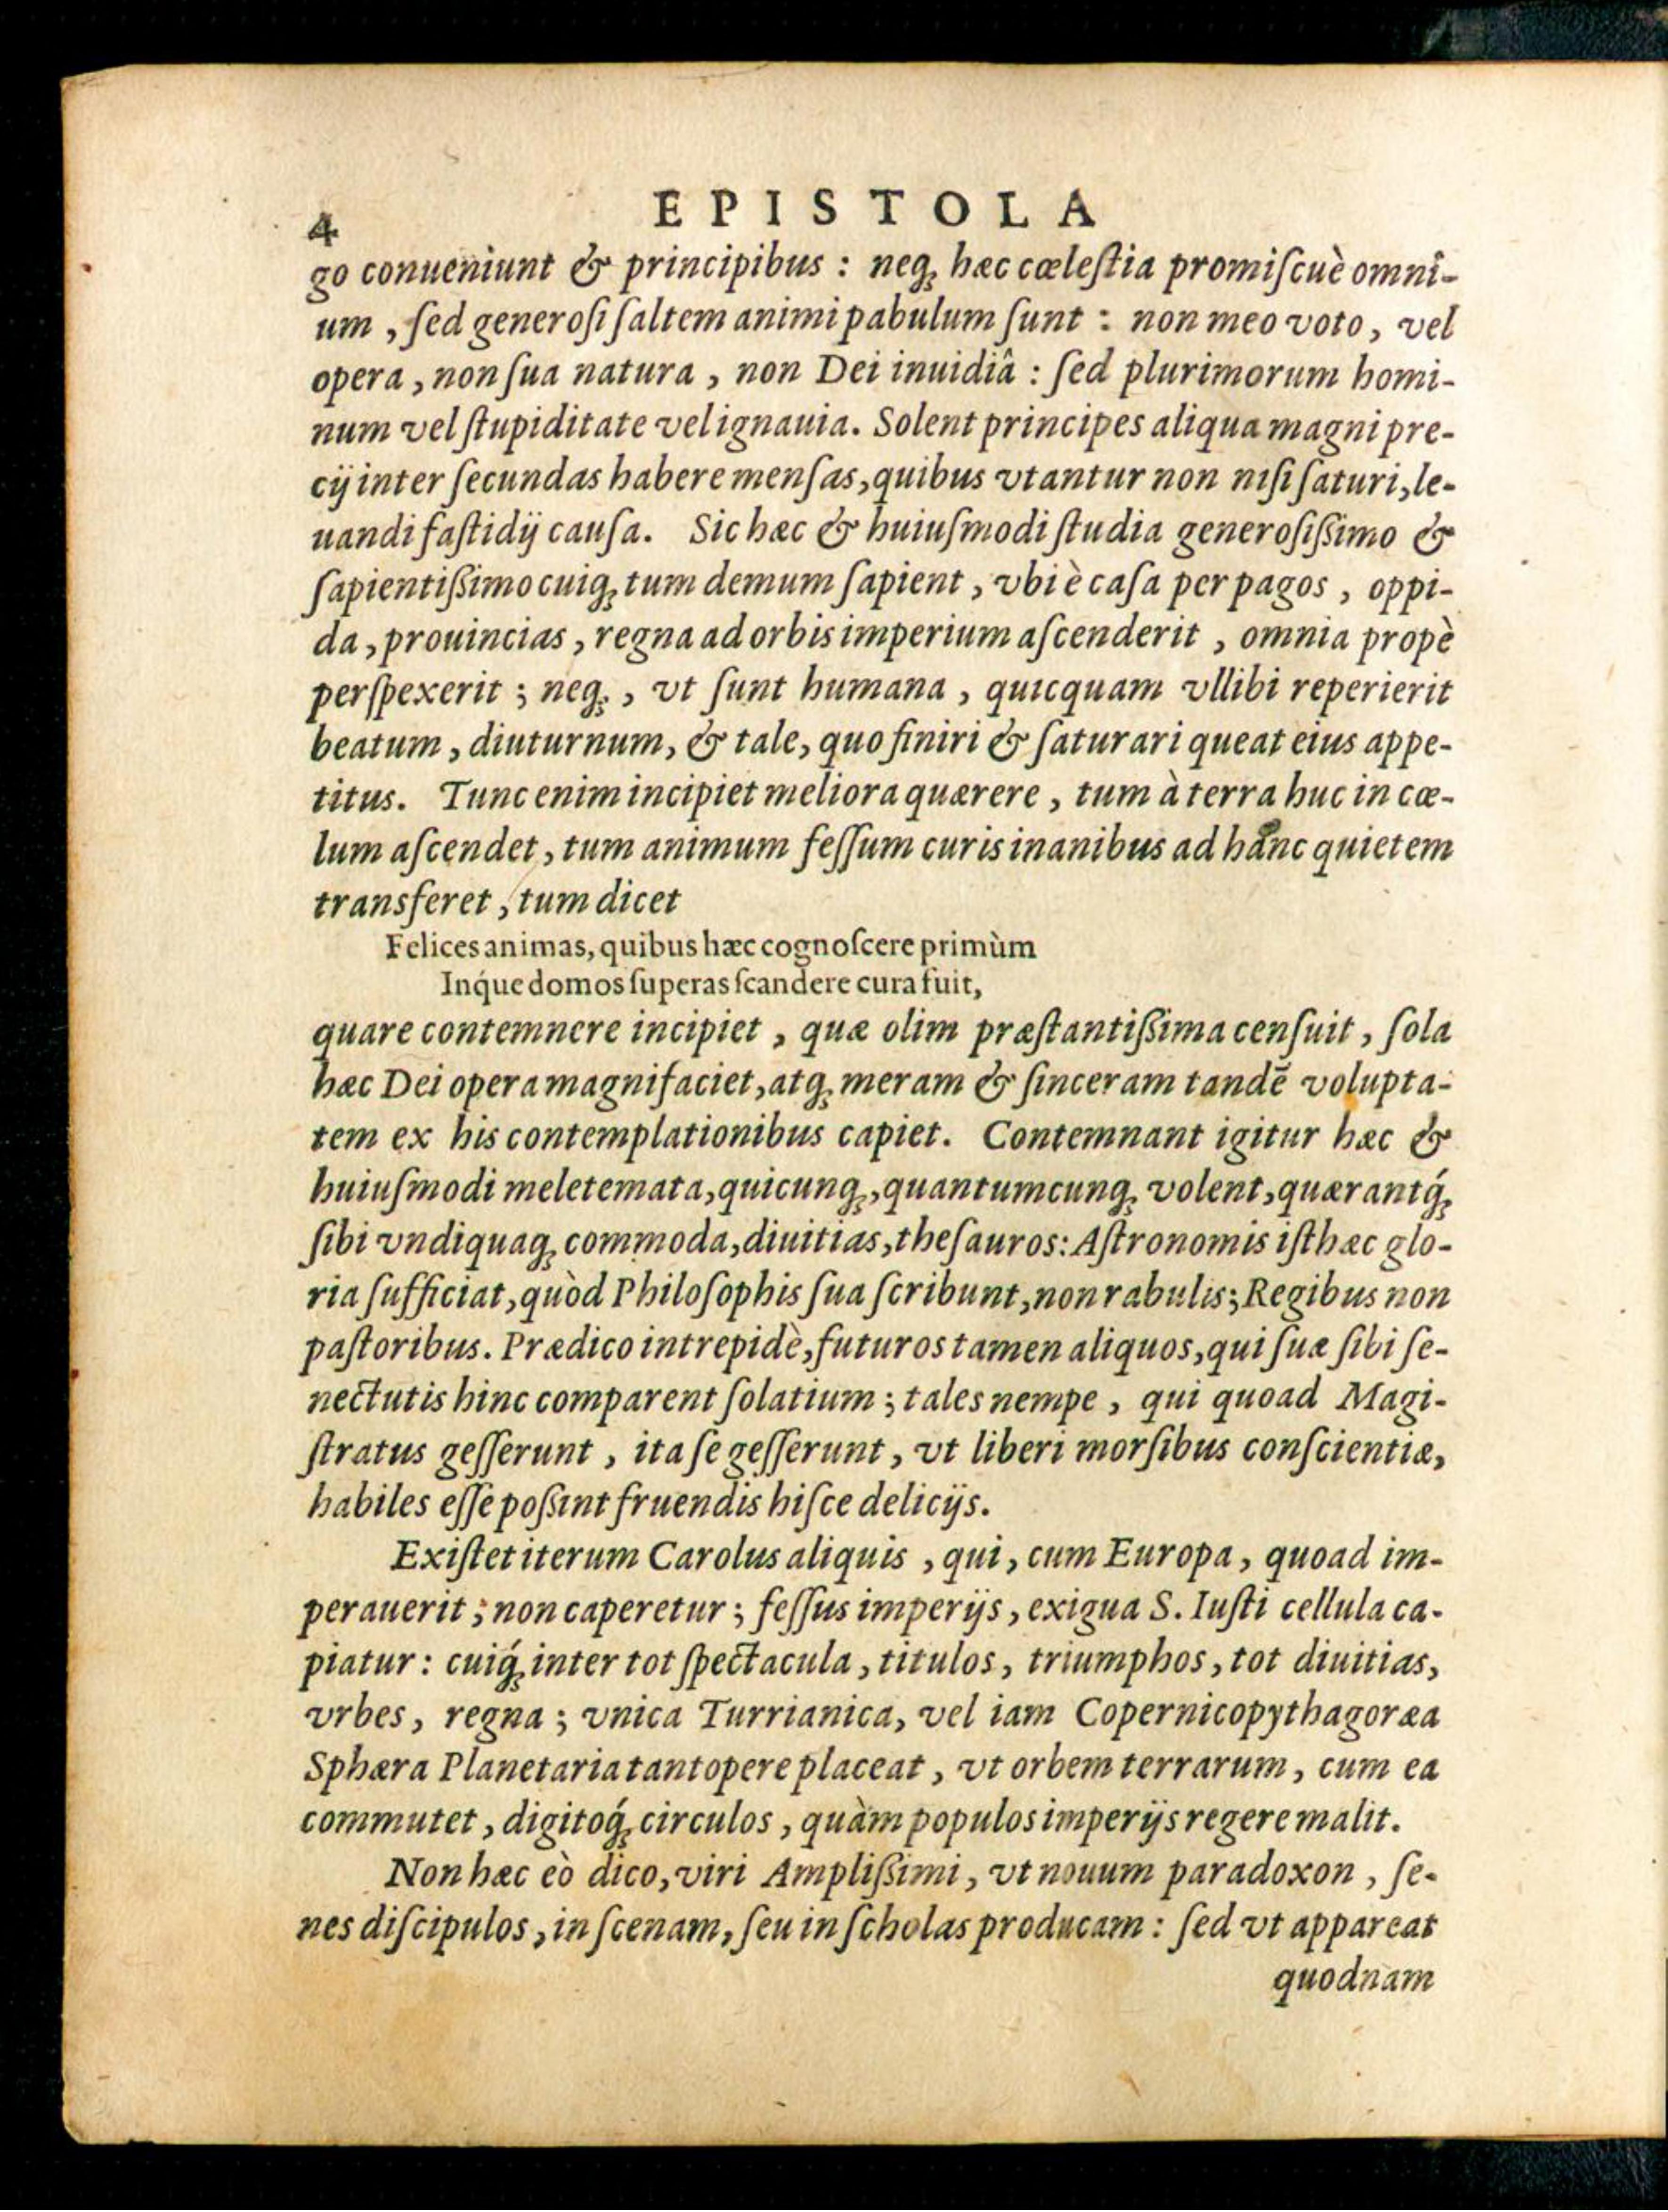 4
EPISTOLA
go conueniunt & principibus : neq̨ hæc cœleſtia promiſcuè omni-
um , ſed generoſi ſaltem animi pabulum ſunt : non meo voto , vel
opera , non ſua natura , non Dei inuidiâ : ſed plurimorum homi-
num vel ſtupiditate vel ignauia. Solent principes aliqua magni pre-
cij inter ſecundas habere menſas, quibus vtantur non niſi ſaturi, le-
uandi faſtidij cauſa. Sic hæc & huiuſmodi ſtudia generoſiſsimo &
ſapientiſsimo cuiq̨ tum demum ſapient , vbi è caſa per pagos , oppi-
da , prouincias , regna ad orbis imperium aſcenderit , omnia propè
perſpexerit ; neq̨ , vt ſunt humana , quicquam vllibi reperierit
beatum , diuturnum, & tale, quo finiri & ſaturari queat eius appe-
titus. Tunc enim incipiet meliora quærere , tum à terra huc in cœ-
lum aſcendet , tum animum feſſum curis inanibus ad hanc quietem
transferet , tum dicet
Felices animas, quibus hæc cognoſcere primùm
Inq́ue domos ſuperas ſcandere cura fuit,
quare contemnere incipiet , quæ olim præſtantiſsima cenſuit , ſola
hæc Dei opera magnifaciet, atq̨ meram & ſinceram tandē volupta-
tem ex his contemplationibus capiet. Contemnant igitur hæc &
huiuſmodi meletemata, quicunq̨, quantumcunq̨ volent, quærantq̨́
ſibi vndiquaq̨ commoda, diuitias, theſauros: Aſtronomis iſthæc glo-
ria ſufficiat, quòd Philoſophis ſua ſcribunt, non rabulis; Regibus non
paſtoribus. Prædico intrepidè, futuros tamen aliquos, qui ſuæ ſibi ſe-
nectutis hinc comparent ſolatium ; tales nempe , qui quoad Magi-
ſtratus geſſerunt , ita ſe geſſerunt , vt liberi morſibus conſcientiæ,
habiles eſſe poſsint fruendis hiſce delicijs.
Exiſtet iterum Carolus aliquis , qui , cum Europa , quoad im-
perauerit ; non caperetur ; feſſus imperijs , exigua S. Iuſti cellula ca-
piatur : cuiq̨́ inter tot ſpectacula , titulos , triumphos , tot diuitias,
vrbes, regna ; vnica Turrianica, vel iam Copernicopythagoræa
Sphæra Planetaria tantopere placeat , vt orbem terrarum , cum ea
commutet , digitoq̨́ circulos , quàm populos imperijs regere malit.
Non hæc eò dico, viri Ampliſsimi, vt nouum paradoxon , ſe-
nes diſcipulos , in ſcenam, ſeu in ſcholas producam : ſed vt appareat
quodnam